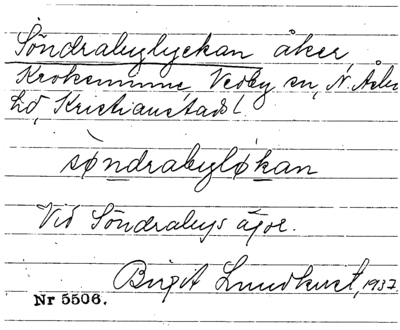 Söndrabylyckan åker,
Krokeminne Vedby sn, N. Åsbo
hd, Kristianstads l.
søndrabyløkan
Vid Söndrabys ägor.
Birgit Lundkvist, 1937
Nr 5506.